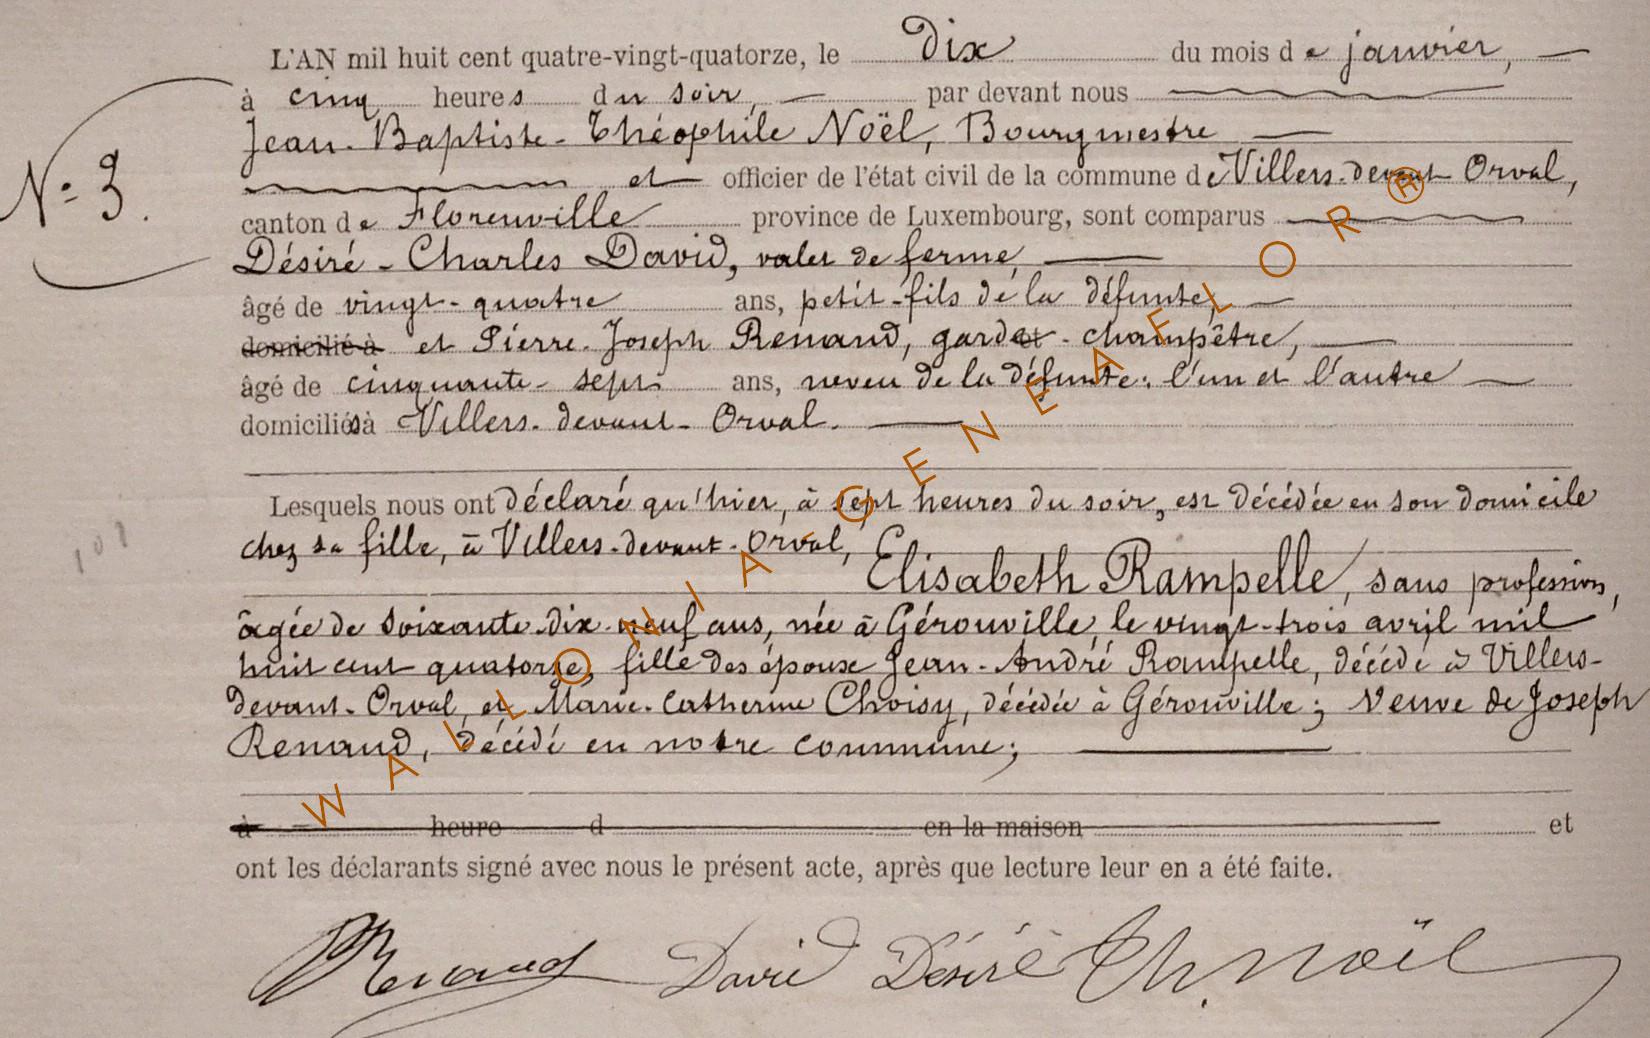 L'AN mil huit cent quatre-vingt-quatorze, le Dix du mois de janvier,
à cinq heures du soir, par devant nous
Jean-Baptiste-Théophile Noël, Bourgmestre
N° 3.
et officier de l'état civil de la commune de Villers-devant Orval,
canton de Florenville province de Luxembourg, sont comparus
Désiré-Charles David, valet de ferme,
âgé de vingt-quatre ans, petit-fils de la défunte,
domicilié à et Pierre-Joseph Renaud, garde-champêtre,
âgé de cinquante-sept ans, neveu de la défunte; l'un et l'autre
domiciliés à Villers-devant-Orval.
Lesquels nous ont déclaré qu'hier, à sept heures du soir, est décédée en son domicile
chez sa fille, à Villers-devant-Orval,
Elisabeth Rampelle, sans profession,
âgée de soixante-dix-neuf ans, née à Gérouville, le vingt-trois avril mil
huit cent quatorze, fille des époux Jean-André Rampelle, décédé à Villers-
devant-Orval, et Marie-Catherine Choisy, décédée à Gérouville; veuve de Joseph
Renaud, décédé en notre commune;
à heure d en la maison et
ont les déclarants signé avec nous le présent acte, après que lecture leur en a été faite.
Renaud David Désiré Th. Noël
101
WALLONIA-GENEAFLOR®